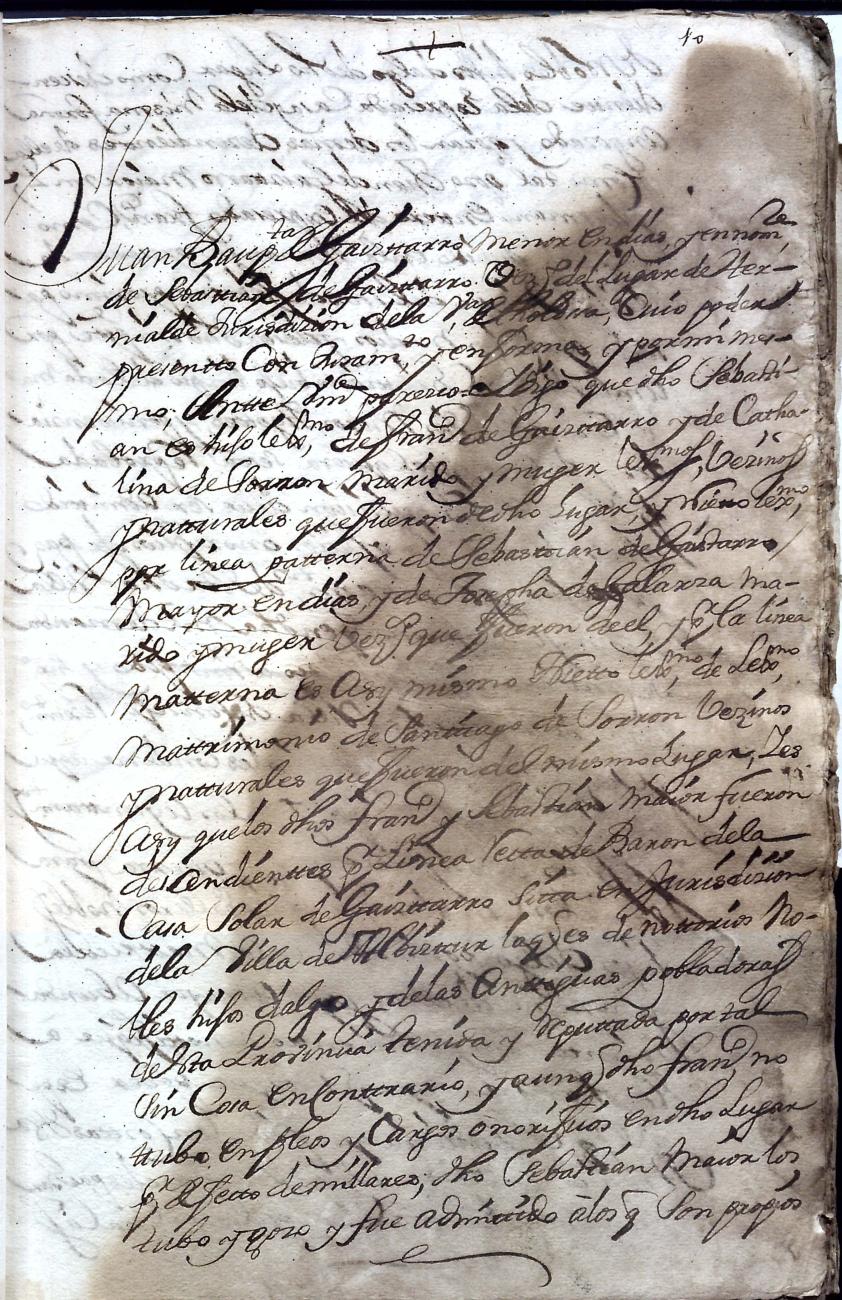 10
Juan Baupta de Gaiztarro Menor en dias, y en nomre
de Sebastian de Gaiztarro Vezo del Lugar de Her-
nialde Jurisdizion dela Va de tholosa, Cuio poder
presentto Con Juramto, y en forma, y por mi mes-
mo, Antte Vmd parezco e Digo que dho Sebasti-
an es hijo lexmo, de franco de Gaiztarro y de Catha-
lina de Sorron Marido y muger lexmos, Vezinos
y natturales que fueron de dho Lugar, y Nieto lexmo,
por linea patterna de Sebastian de Gaiztarro
Mayor en dias, y de de Galarza Ma-
rido y muger Vezos que fueron de el, y pr la linea
Matterna es Asy mismo Nietto lexmo, de Lexmo
Mattrimonio de Santiago de Sorron Vezinos
y natturales que fueron del mismo Lugar, Y es
Asy que los dhos franco y Sebastian Maior fueron
descendienttes pr Linea Retta de Baron dela
Casa Solar de Gaizttarro sitta en Jurisdizion
dela Villa de Albizttur la q es de nottorios No-
bles hijos dalgo y delas Anttiguas pobladoras
de esta Provincia tenida y Reputtada por tal
sin Cosa en Conttrario, y aunq dho franco, no
ttubo enpleos y Cargos onorificos en dho Lugar
pr defecto de millares, dho Sebastian Maior los
tubo y gozo y fue admittido a los q son propios